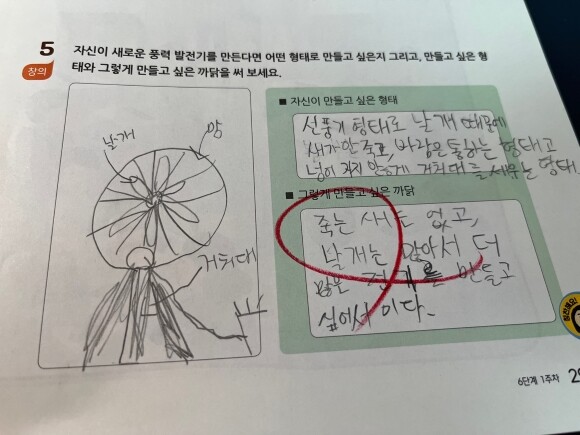 5 자신이 새로운 풍력 발전기를 만든다면 어떤 형태로 만들고 싶은지 그리고, 만들고 싶은 형
창의 태와 그렇게 만들고 싶은 까닭을 써 보세요.
날개
망
거치대
■ 자신이 만들고 싶은 형태
선풍기 형태로 날개 때문에
새가 안 죽고, 바람은 통하는 형태고
넘어지지 않게 거치대를 세우는 형태.
■ 그렇게 만들고 싶은 까닭
죽는 새도 없고,
날개는 많아서 더
많은 전기를 만들고
싶어서 이다.
6단계 1주차